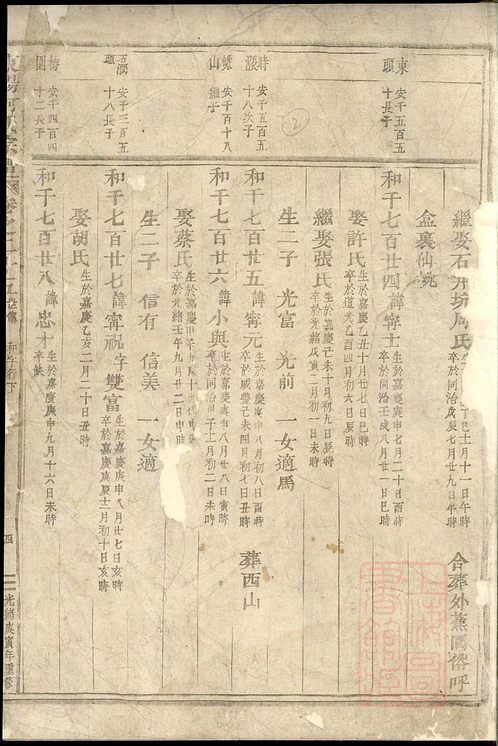 東頭
安千五百五十長子
時漲
安千五百五十八次子
山
安千百十八繼子
頭
安千三百五十八長子
梅園
安千四百四十二長子
2
繼娶石井坊周氏
巳十月十一日午時
卒於同治戊辰七月廿九日午時
合葬外蕉園
盒裏仙
和千七百廿四 諱寧士
生於嘉慶庚申七月二十日酉時
卒於同治壬戌八月廿一日巳時
娶許氏
生於嘉慶乙丑十月廿七日巳時
卒於道光乙酉四月初六日辰時
繼娶張氏
生於嘉慶己未十月初九日辰時
卒於光緒戊寅二月初一日未時
生二子 光富 光前 一女適馬
和千七百廿五 諱寧元
生於嘉慶庚申八月初八日酉時
卒於咸豐己未四月初七日丑時
葬西山
和千七百廿六 諱小與
生於嘉慶庚申八月廿八日寅時
卒於同治甲子十一月初二日未時
娶蔡氏
生於嘉慶甲子
卒於光緒壬午九月廿二日申時
生二子 信有 信美 一女適
和千七百廿七 諱寧祝 字雙富
生於嘉慶庚申八月廿七日亥時
卒於嘉慶庚辰十一月初十日亥時
娶胡氏
生於嘉慶乙亥二月二十日丑時
和千七百廿八 諱忠才
生於嘉慶庚申九月十六日未時
卒缺
和字行下
四
光緒庚寅年重修